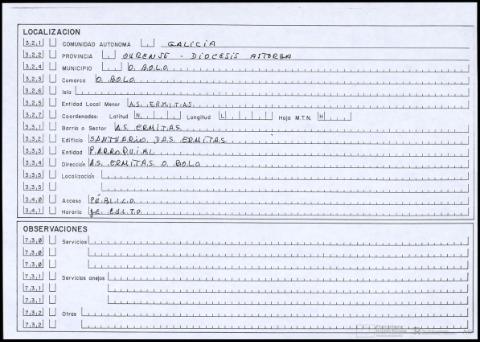 LOCALIZACION
3.2.1 COMUNIDAD AUTONOMA GALICIA
3.2.2 PROVINCIA OURENSE - DIOCESIS ASTORGA
3.2.4 MUNICIPIO O BOLO
3.2.3 Comarca O BOLO
3.2.6 Isla
3.2.5 Entidad Local Menor AS ERMITAS
3.2.7 Coordenadas: Latitud N Longitud L Hoja M.T.N. H
3.3.1 Barrio o Sector AS ERMITAS
3.3.2 Edificio SANTUARIO DAS ERMITAS
3.3.3 Entidad PARROQUIAL
3.3.4 Dirección AS ERMITAS O BOLO
3.3.3 Localización
3.3.3
3.4.0 Acceso PÚBLICO
3.4.1 Horario DE CULTO
OBSERVACIONES
7.3.0 Servicios
7.3.0
7.3.0
7.3.1 Servicios anejos
7.3.1
7.3.1
7.3.2 Otros
7.3.2